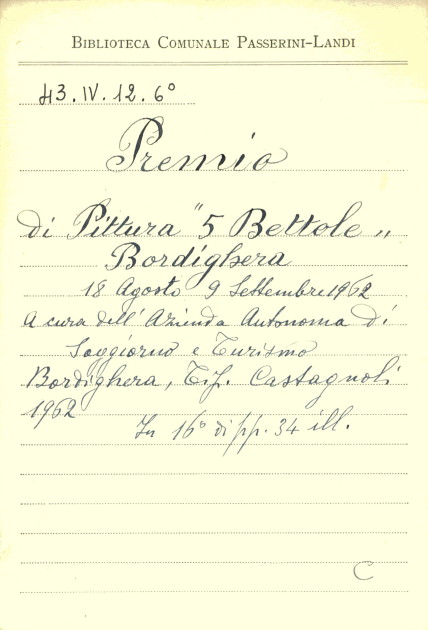 BIBLIOTECA COMUNALE PASSERINI-LANDI
43.IV.12.6°
Premio
di Pittura "5 Bettole„
Bordighera
18 Agosto 9 Settembre 1962
A cura dell'Azienda Autonoma di
Soggiorno e Turismo
Bordighera, Tip. Castagnoli
1962
In 16° di pp. 34 ill.
C